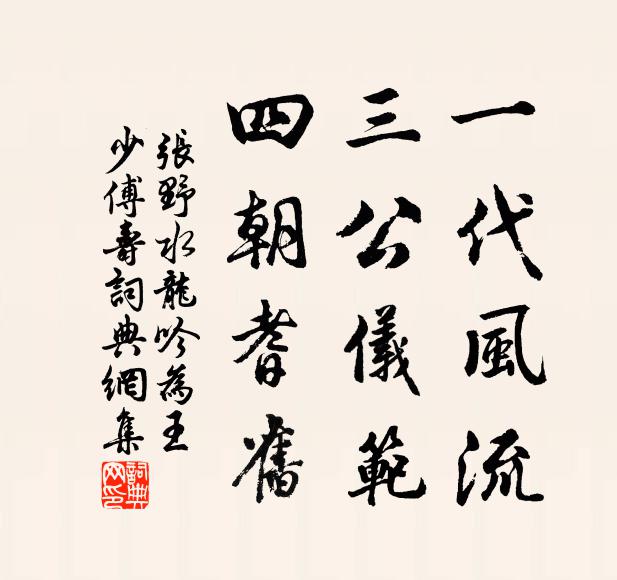 一代風流
三公儀範
四朝耆舊
張野水龍吟為王
少傅壽詞典網集
詞典网印